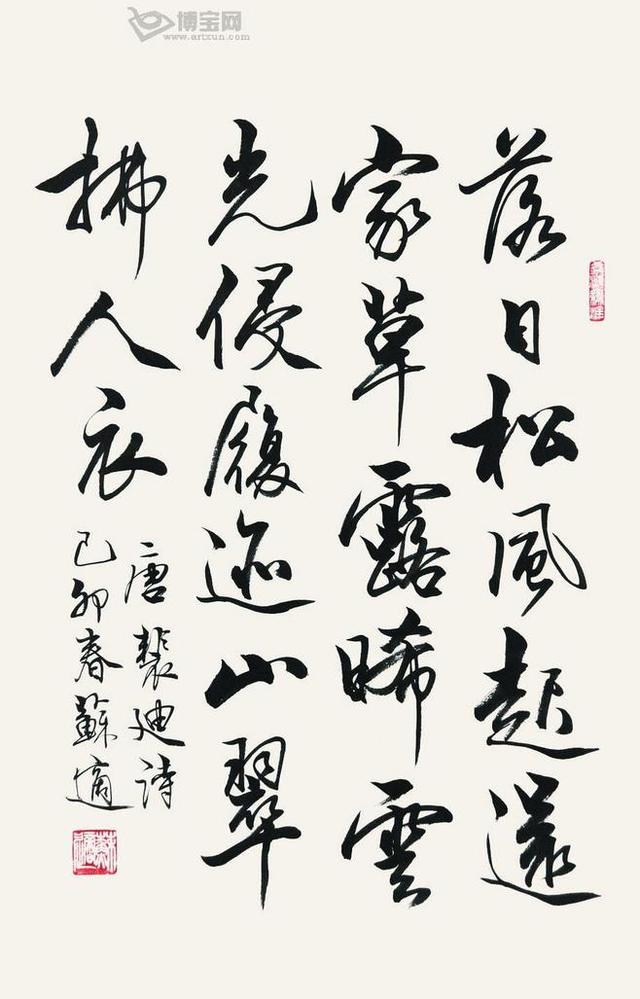 博宝网
www.artxun.com
落日松風起還
家草露晞雲
光侵履迹山翠
拂人衣
唐裴迪诗
己卯春蘇適